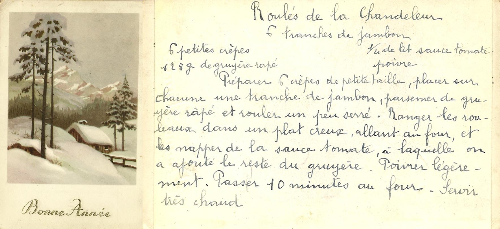 Bonne Année
Roulés de la Chandeleur
6 tranches de jambon
6 petites crêpes
1/4 de lit sauce tomate
125 g de gruyère rapé
poivre
Préparer 6 crêpes de petite taille, placer sur
chacune une tranche de jambon, parsemer de gru-
yère râpé et rouler un peu serré. Ranger les rou-
leaux dans un plat creux, allant au four, et
les napper de la sauce tomate, à laquelle on
a ajouté le reste du gruyère. Poivrer légère-
ment. Passer 10 minutes au four - Servir
très chaud